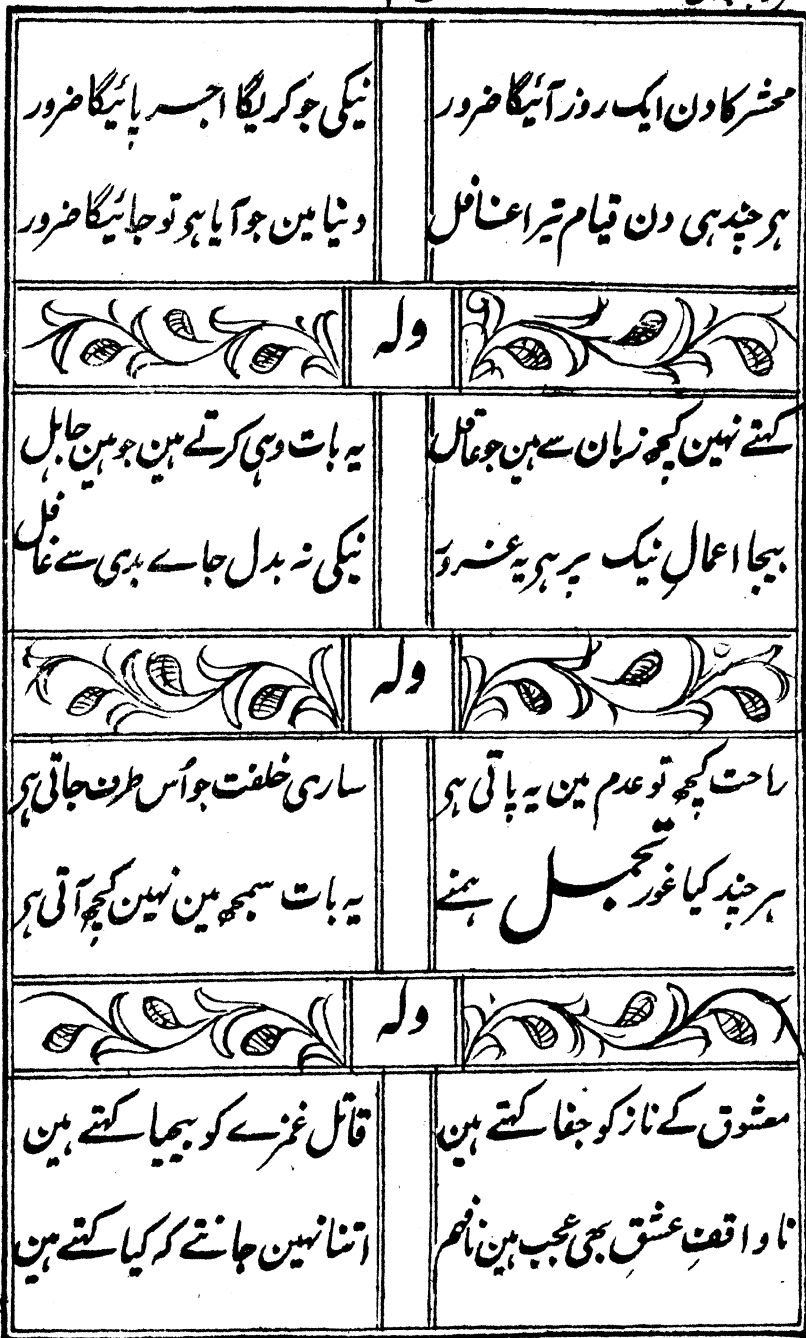 محشر کا دن ایک روز آئیگا ضرور نیکی جو کریگا اجر پائیگا ضرور
ہر چند ہی دن قیام تیرا غافل دنیا مین جو آیا ہر تو جائیگا ضرور
ولہ
کہتے نہین کچھ زبان سے ہین جو عاقل یہ بات وہی کرتے ہین جو ہین جاہل
بیجا اعمالِ نیک پر ہر یہ غرور نیکی نہ بدل جاے بدی سے غافل
ولہ
راحت کچھ تو عدم مین یہ پاتی ہر ساری خلقت جو اُس طرف جاتی ہر
ہر چند کیا غور تجمل ہمنے یہ بات سمجھ مین نہین کچھ آتی ہر
ولہ
معشوق کے ناز کو جفا کہتے ہین قاتل غمزے کو بیحیا کہتے ہین
ناواقفِ عشق بھی عجب ہین نافہم اتنا نہین جانتے کہ کیا کہتے ہین